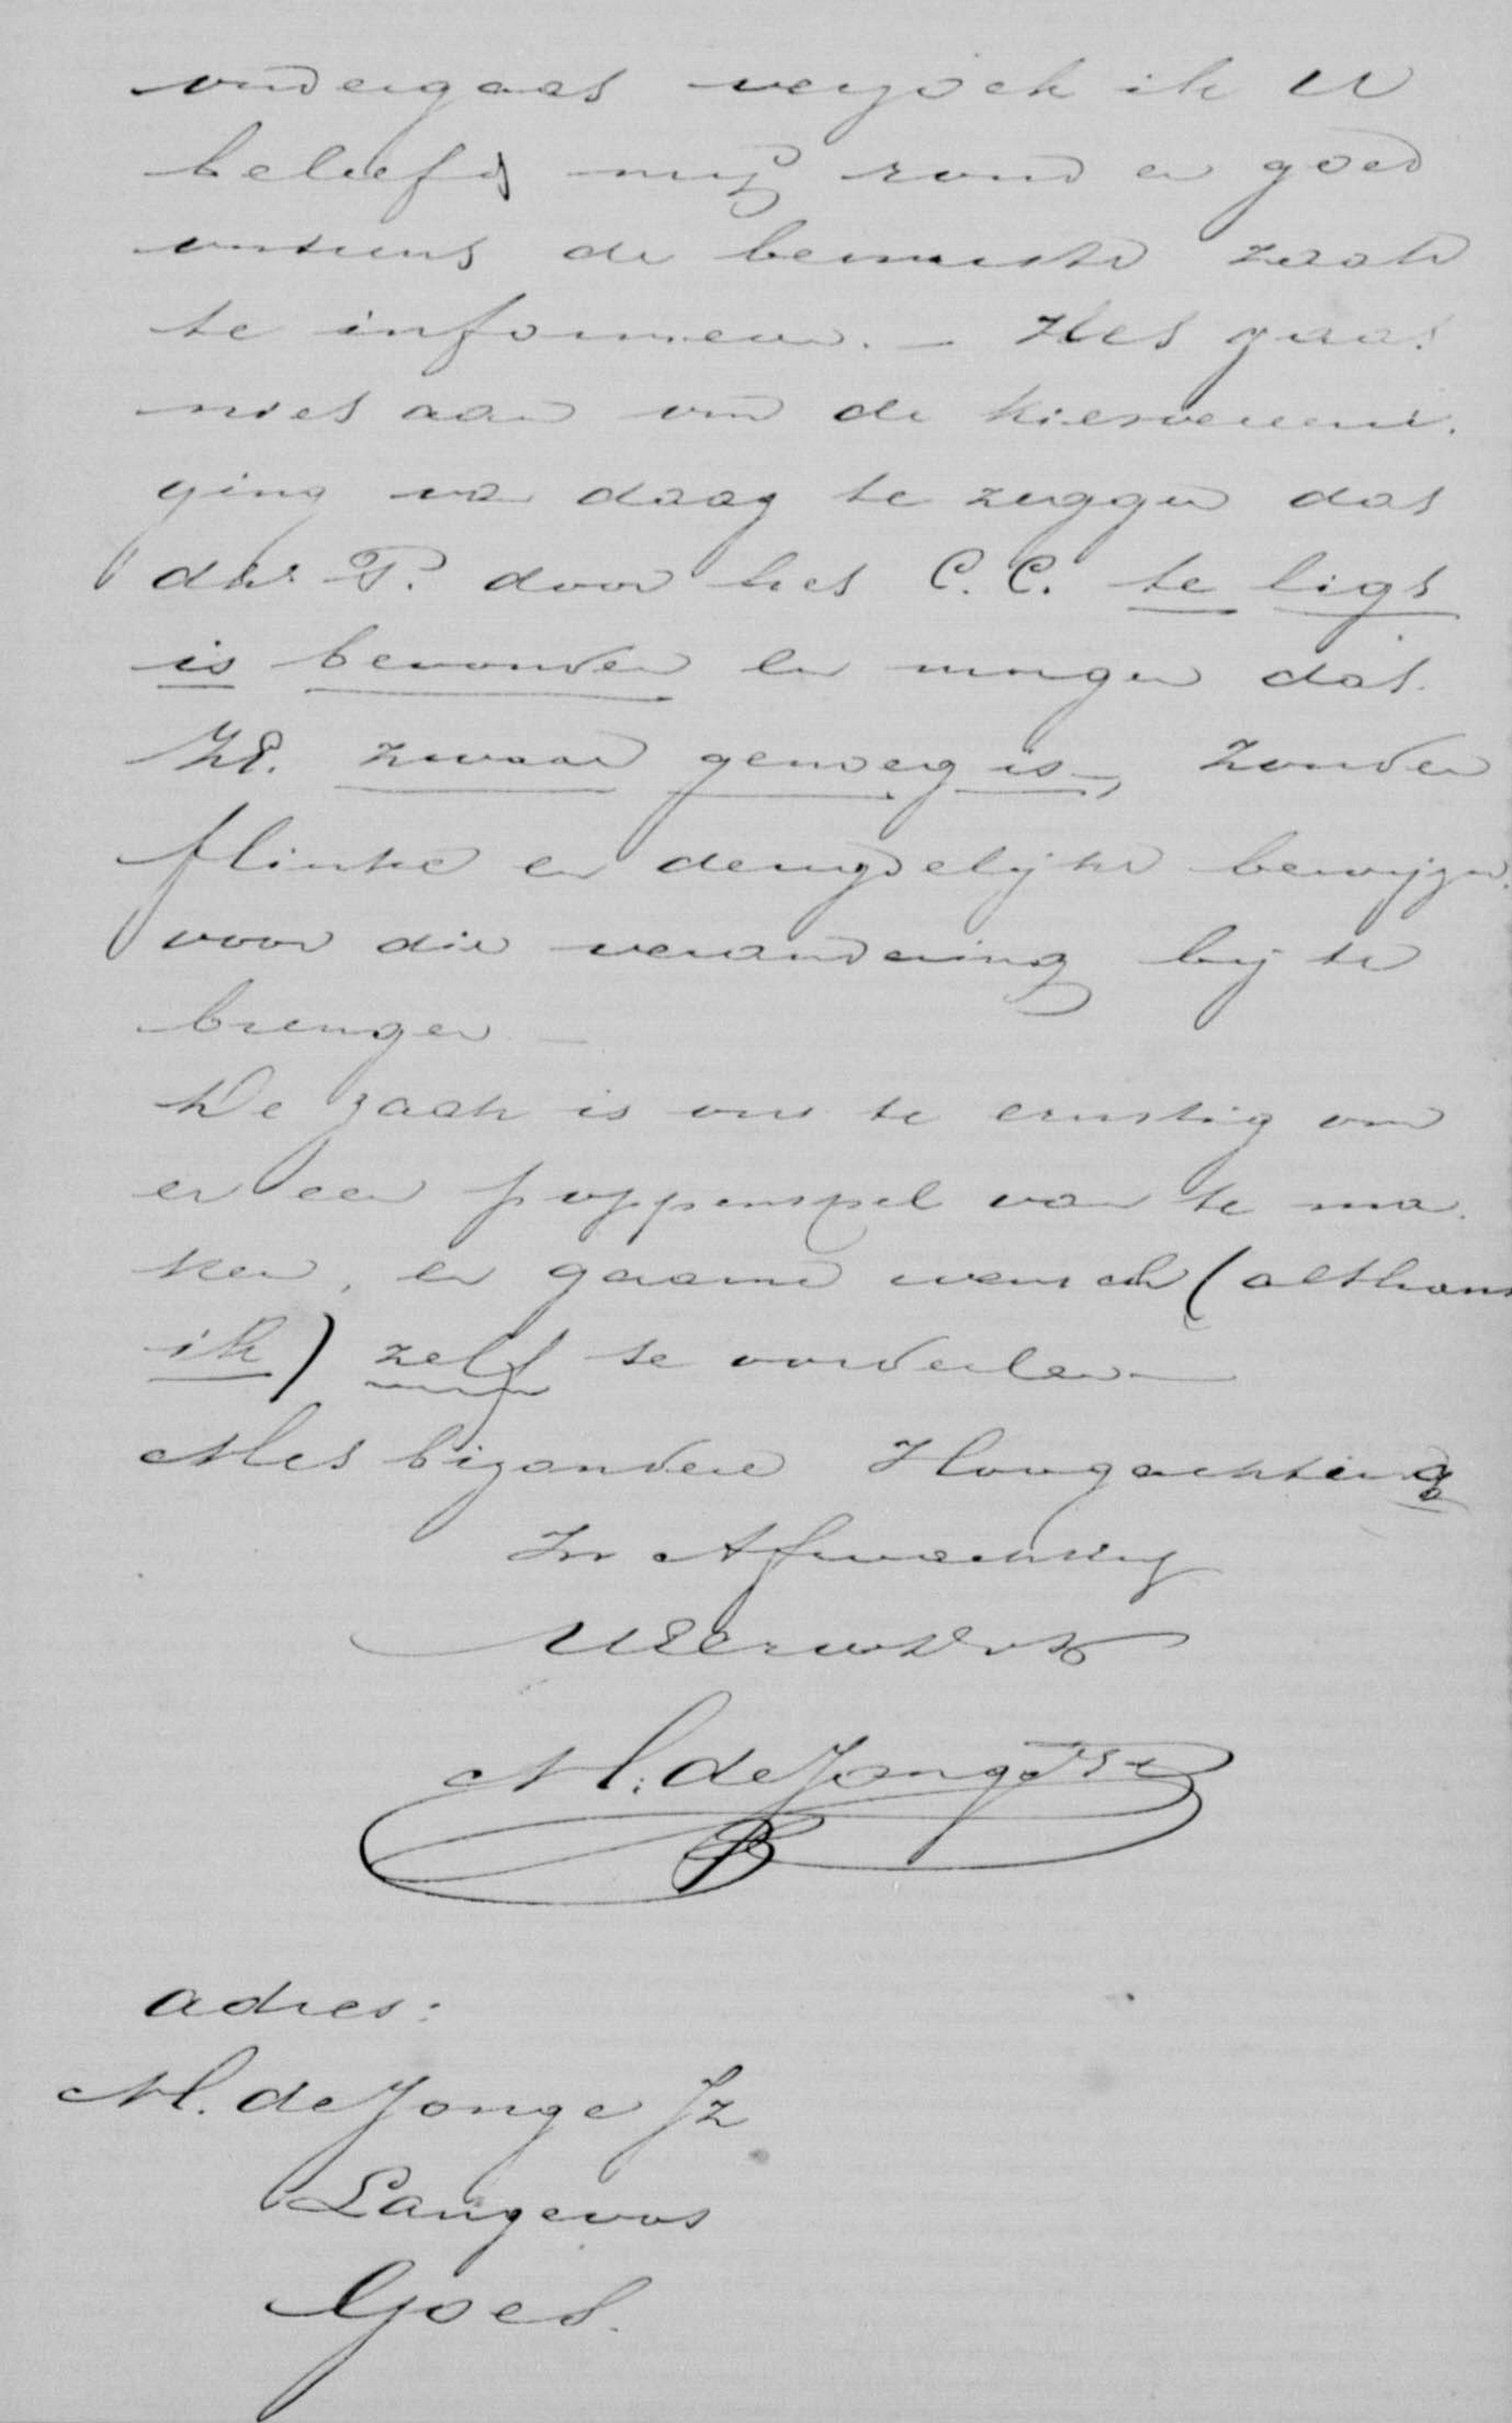 ondergaat verzoek ik U
beleefd mij rond en goed
omtrent de bewuste zaak
te informeren. – Het gaat
niet aan om de kiesvereeni-
ging van daag te zeggen dat
dhr P. door het C.C. te ligt
is bevonden en morgen dat
ZE. zwaar genoeg is, zonder
flinke en deugdelijke bewijzen
voor die verandering bij te
brengen –
De zaak is ons te ernstig om
er een poppenspel van te ma-
ken, en gaarne wensch (althans
ik) zelf te oordeelen –
Met bizondere Hoogachting
In Afwachting
UEerw
M. de Jonge Jz
adres:
M. de Jonge Jz
Langevos
Goes.